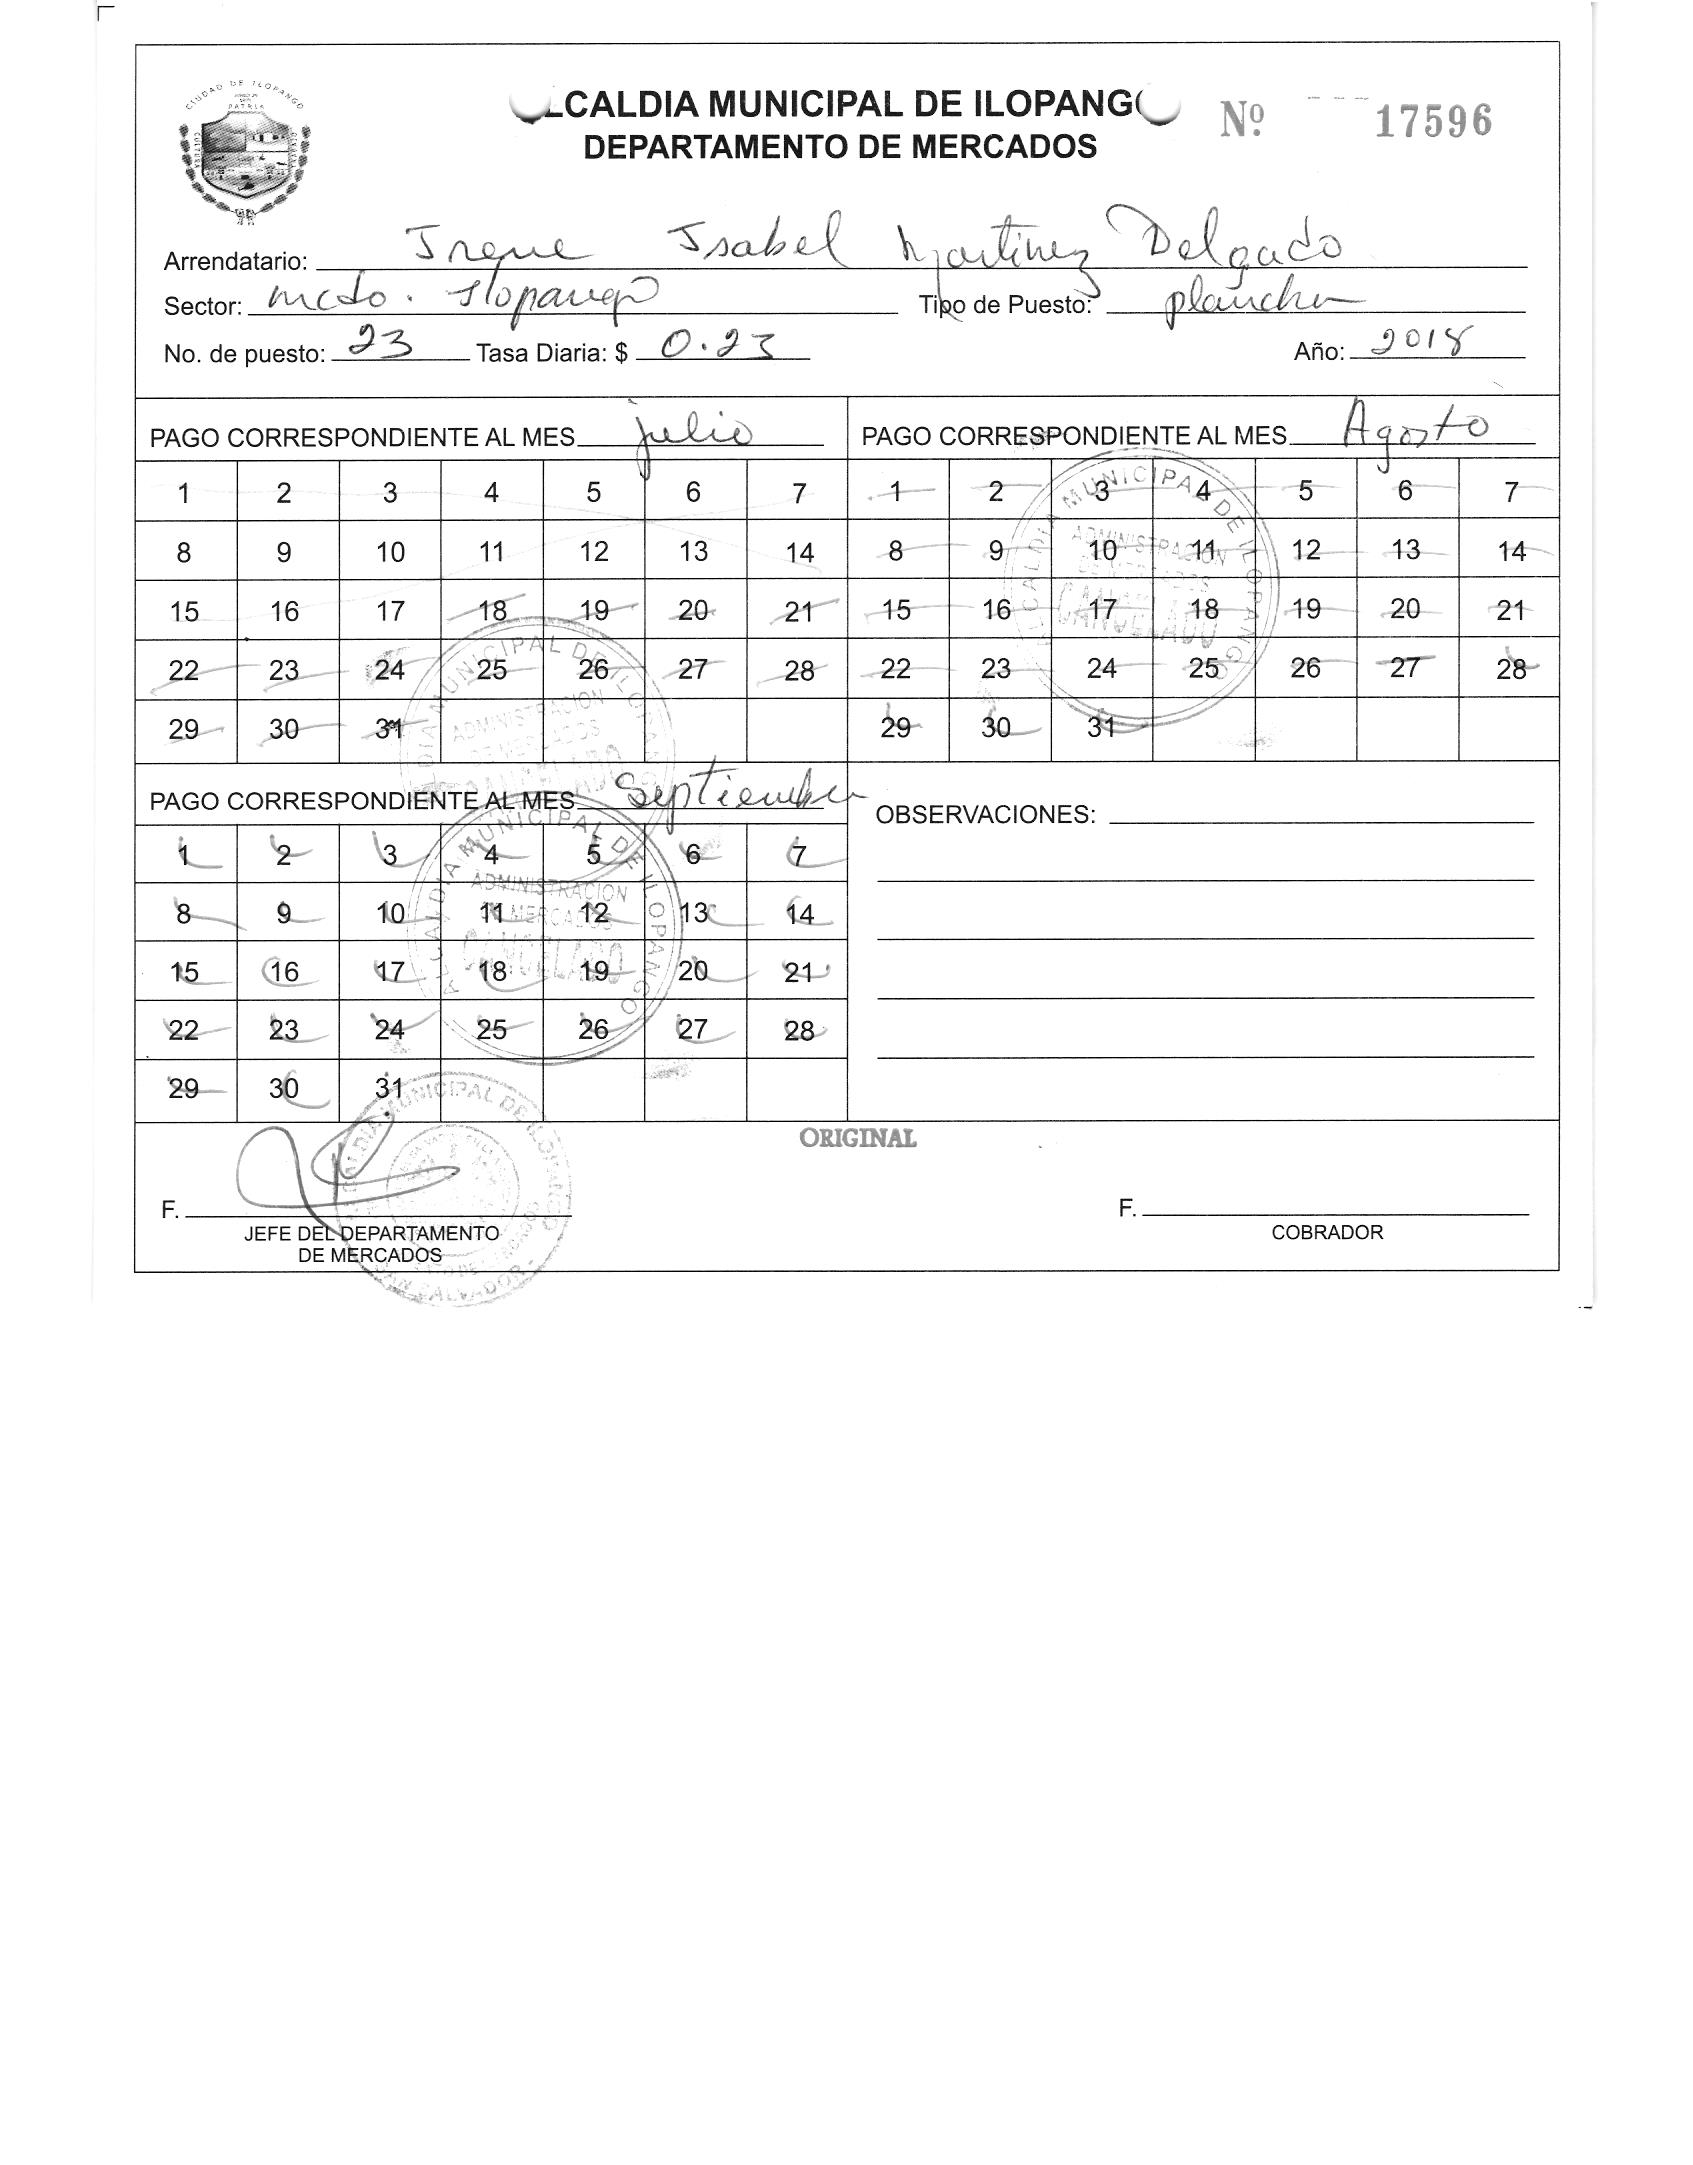 CIUDAD DE ILOPANGO
PATRIA
CULTURA
ALCALDIA MUNICIPAL DE ILOPANGO Nº 17596
DEPARTAMENTO DE MERCADOS
Arrendatario: Irene Isabel Martinez Delgado
Sector: mcdo. Ilopango Tipo de Puesto: plancha
No. de puesto: 23 Tasa Diaria: $ 0.23 Año: 2018
PAGO CORRESPONDIENTE AL MES julio
1 2 3 4 5 6 7
8 9 10 11 12 13 14
15 16 17 18 19 20 21
22 23 24 25 26 27 28
29 30 31
ALCALDIA MUNICIPAL DE ILOPANGO
ADMINISTRACION
DE MERCADOS
CANCELADO
PAGO CORRESPONDIENTE AL MES Agosto
1 2 3 4 5 6 7
8 9 10 11 12 13 14
15 16 17 18 19 20 21
22 23 24 25 26 27 28
29 30 31
ALCALDIA MUNICIPAL DE ILOPANGO
ADMINISTRACION
DE MERCADOS
CANCELADO
PAGO CORRESPONDIENTE AL MES Septiembre
1 2 3 4 5 6 7
8 9 10 11 12 13 14
15 16 17 18 19 20 21
22 23 24 25 26 27 28
29 30 31
ALCALDIA MUNICIPAL DE ILOPANGO
ADMINISTRACION
DE MERCADOS
CANCELADO
OBSERVACIONES:
ORIGINAL
F.
JEFE DEL DEPARTAMENTO
DE MERCADOS
ALCALDIA MUNICIPAL DE ILOPANGO
SAN SALVADOR
F.
COBRADOR